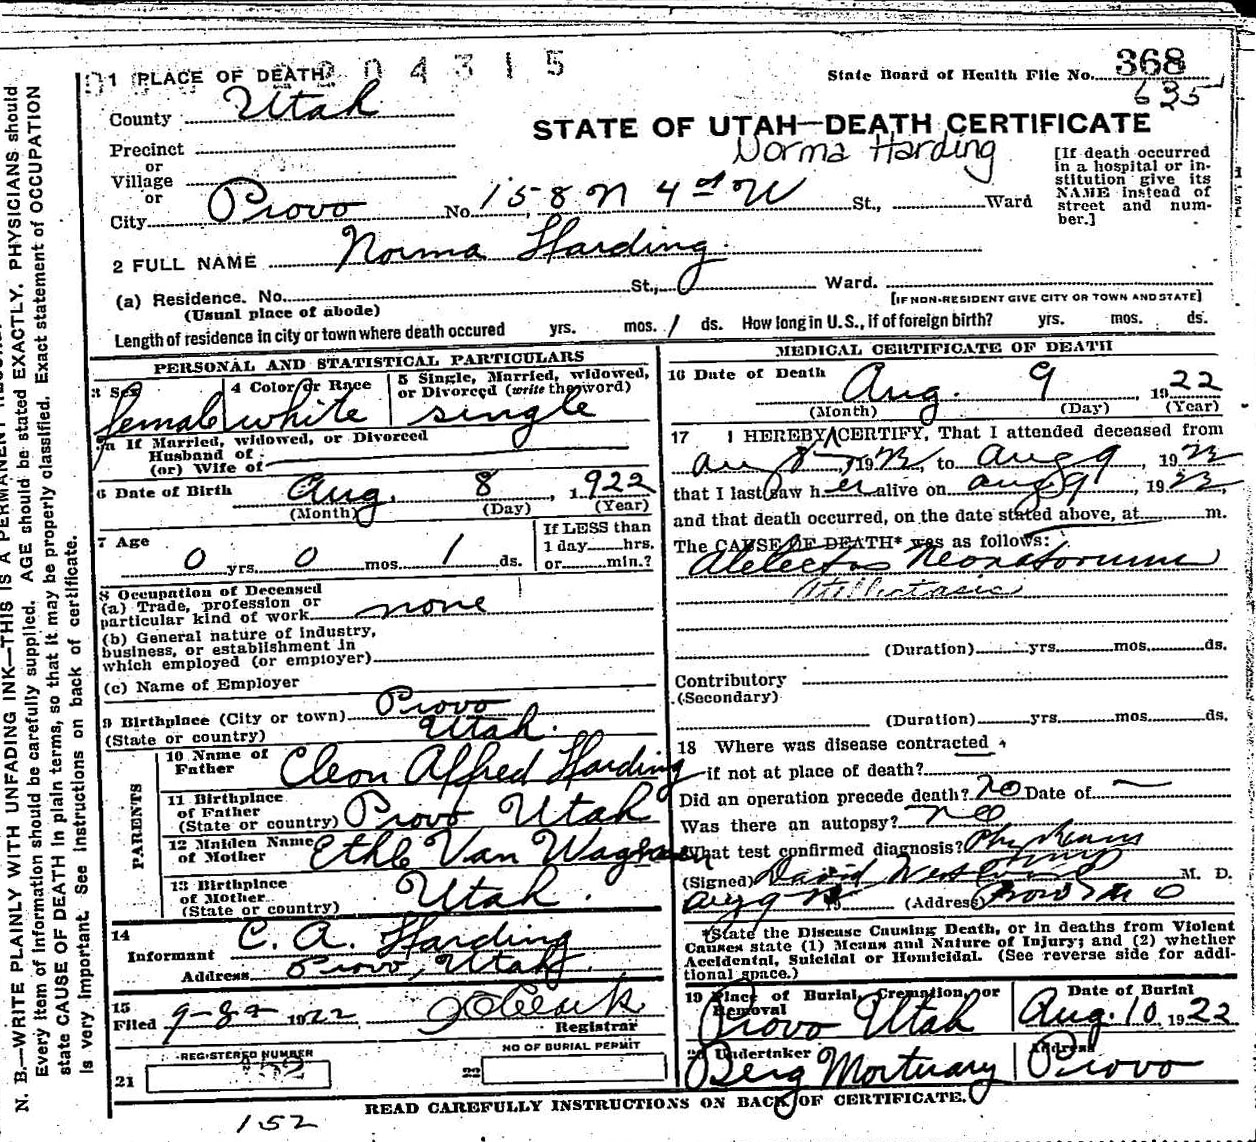 204315
1 PLACE OF DEATH
State Board of Health File No. 368
635
County Utah
STATE OF UTAH—DEATH CERTIFICATE
Norma Harding
Precinct
or
Village
or
City Provo No. 158 N 4th W St., Ward
[If death occurred in a hospital or institution give its NAME instead of street and number.]
2 FULL NAME Norma Harding
(a) Residence. No. St., Ward.
(Usual place of abode) [IF NON-RESIDENT GIVE CITY OR TOWN AND STATE]
Length of residence in city or town where death occured yrs. mos. 1 ds. How long in U.S., if of foreign birth? yrs. mos. ds.
PERSONAL AND STATISTICAL PARTICULARS
3 Sex female
4 Color or Race white
5 Single, Married, widowed, or Divorced (write the word) single
If Married, widowed, or Divorced
Husband of
(or) Wife of
6 Date of Birth Aug. 8, 1922
(Month) (Day) (Year)
7 Age 0 yrs. 0 mos. 1 ds.
If LESS than
1 day hrs.
or min.?
8 Occupation of Deceased
(a) Trade, profession or
particular kind of work none
(b) General nature of industry,
business, or establishment in
which employed (or employer)
(c) Name of Employer
9 Birthplace (City or town) Provo
(State or country) Utah.
PARENTS
10 Name of Father Cleon Alfred Harding
11 Birthplace of Father (State or country) Provo Utah
12 Maiden Name of Mother Ethle Van Wagenen
13 Birthplace of Mother (State or country) Utah.
14
Informant C. A. Harding
Address Provo, Utah.
15
Filed 9-8 1922
Registrar
REGISTERED NUMBER
21
NO OF BURIAL PERMIT
22
152
MEDICAL CERTIFICATE OF DEATH
16 Date of Death Aug. 9, 1922
(Month) (Day) (Year)
17 I HEREBY CERTIFY, That I attended deceased from
Aug 8, 1922, to Aug 9, 1922
that I last saw her alive on Aug 9, 1922
and that death occurred, on the date stated above, at m.
The CAUSE OF DEATH* was as follows:
Atelectas Neonatorum
Atellectasic
(Duration) yrs. mos. ds.
Contributory
(Secondary)
(Duration) yrs. mos. ds.
18 Where was disease contracted
if not at place of death?
Did an operation precede death? no Date of —
Was there an autopsy? no
What test confirmed diagnosis? Physicians
(Signed) David M. D.
Aug 9 22 19 (Address)
*State the Disease Causing Death, or in deaths from Violent
Causes state (1) Means and Nature of Injury; and (2) whether
Accidental, Suicidal or Homicidal. (See reverse side for addi-
tional space.)
19 Place of Burial, Cremation, or Removal Provo Utah
Date of Burial Aug. 10, 1922
20 Undertaker Berg Mortuary
Address Provo
READ CAREFULLY INSTRUCTIONS ON BACK OF CERTIFICATE.
N. B.—WRITE PLAINLY WITH UNFADING INK—THIS IS A PERMANENT
Every item of information should be carefully supplied. AGE should be stated EXACTLY. PHYSICIANS should
state CAUSE OF DEATH in plain terms, so that it may be properly classified. Exact statement of OCCUPATION
is very important. See instructions on back of certificate.